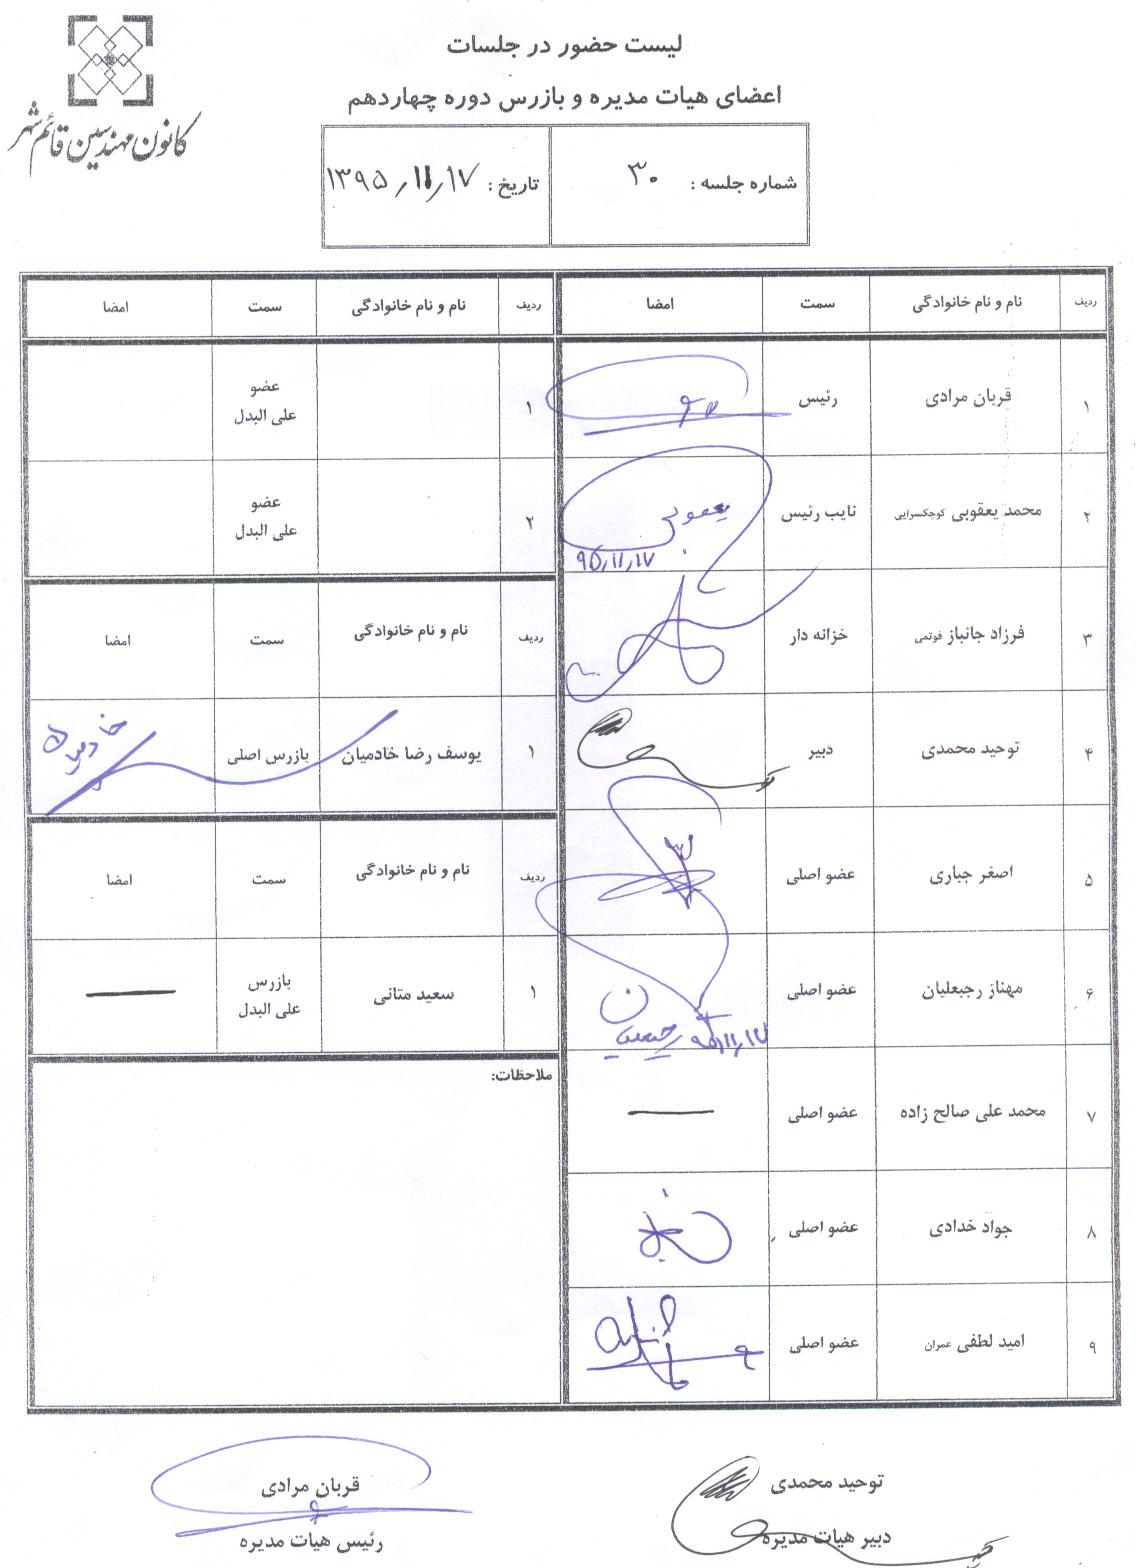 کانون مهندسین قائم شهر
لیست حضور در جلسات
اعضای هیات مدیره و بازرس دوره چهاردهم
شماره جلسه : ۳۰
تاریخ : ۱۳۹۵/۱۱/۱۷
ردیف نام و نام خانوادگی سمت امضا
۱ قربان مرادی رئیس
۲ محمد یعقوبی کوچکسرایی نایب رئیس یعقوبی
۹۵/۱۱/۱۷
۳ فرزاد جانباز فوتمی خزانه دار
۴ توحید محمدی دبیر
۵ اصغر جباری عضو اصلی
۶ مهناز رجبعلیان عضو اصلی
۹۵/۱۱/۱۷
۷ محمد علی صالح زاده عضو اصلی —
۸ جواد خدادی عضو اصلی
۹ امید لطفی عمران عضو اصلی
ردیف نام و نام خانوادگی سمت امضا
۱ عضو
علی البدل
۲ عضو
علی البدل
ردیف نام و نام خانوادگی سمت امضا
۱ یوسف رضا خادمیان بازرس اصلی خادمیان
ردیف نام و نام خانوادگی سمت امضا
۱ سعید متانی بازرس
علی البدل —
ملاحظات:
توحید محمدی
دبیر هیات مدیره
قربان مرادی
رئیس هیات مدیره